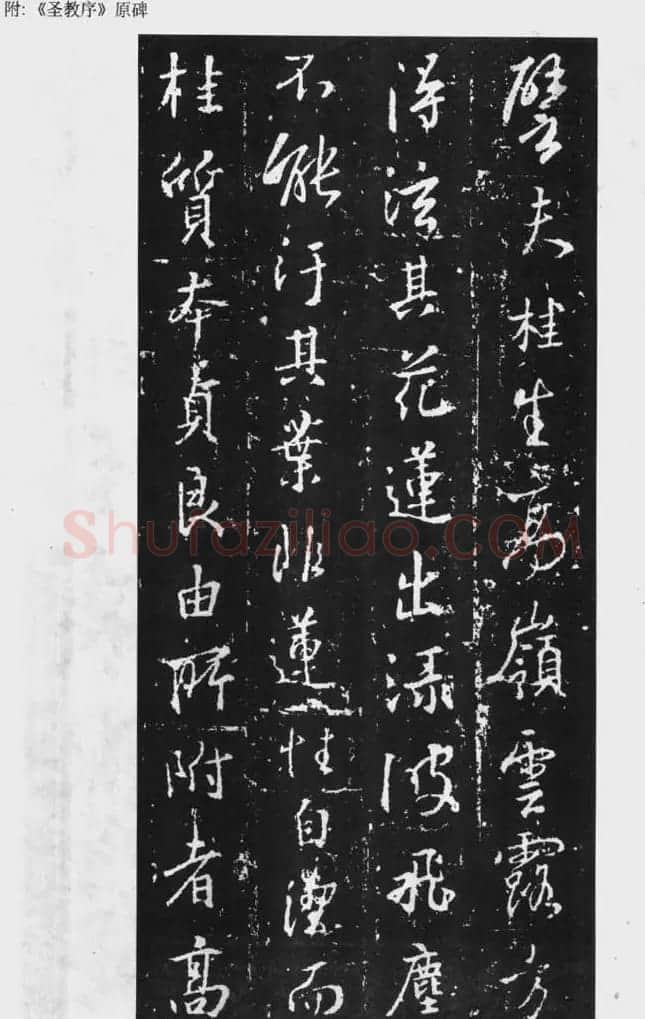 附:《圣教序》原碑
譬夫桂生高嶺雲露方
得泫其花蓮出淥波飛塵
不能汙其葉非蓮性自潔而
桂質本貞良由所附者高
Shufaziliao.COM